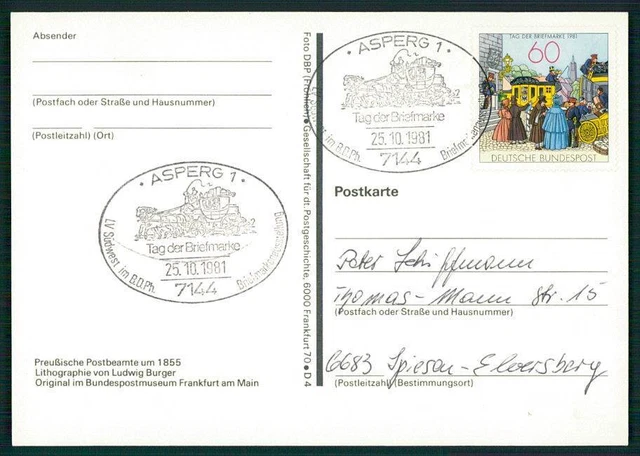 Absender
(Postfach oder Straße und Hausnummer)
(Postleitzahl) (Ort)
ASPERG 1
Tag der Briefmarke
25.10.1981
7144
LV Südwest im B.D.Ph.
Preußische Postbeamte um 1855
Lithographie von Ludwig Burger
Original im Bundespostmuseum Frankfurt am Main
Gesellschaft für dt. Postgeschichte, 6000 Frankfurt 70 • D 4
Foto DBP
ASPERG 1
Tag der Briefmarke
25.10.1981
7144
im B.D.Ph.
TAG DER BRIEFMARKE 1981
60
DEUTSCHE BUNDESPOST
Postkarte
Peter Schiffmann
Thomas-Mann Str. 15
(Postfach oder Straße und Hausnummer)
6683 Spiesen-Elversberg
(Postleitzahl) (Bestimmungsort)